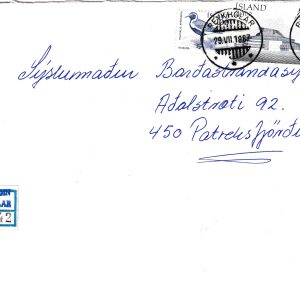 ÍSLAND
REYKHÓLAR
29.VII.1987
Sýslumaður Barðastrandasý
Aðalstræti 92.
450 Patreksfjörð
LAR
42